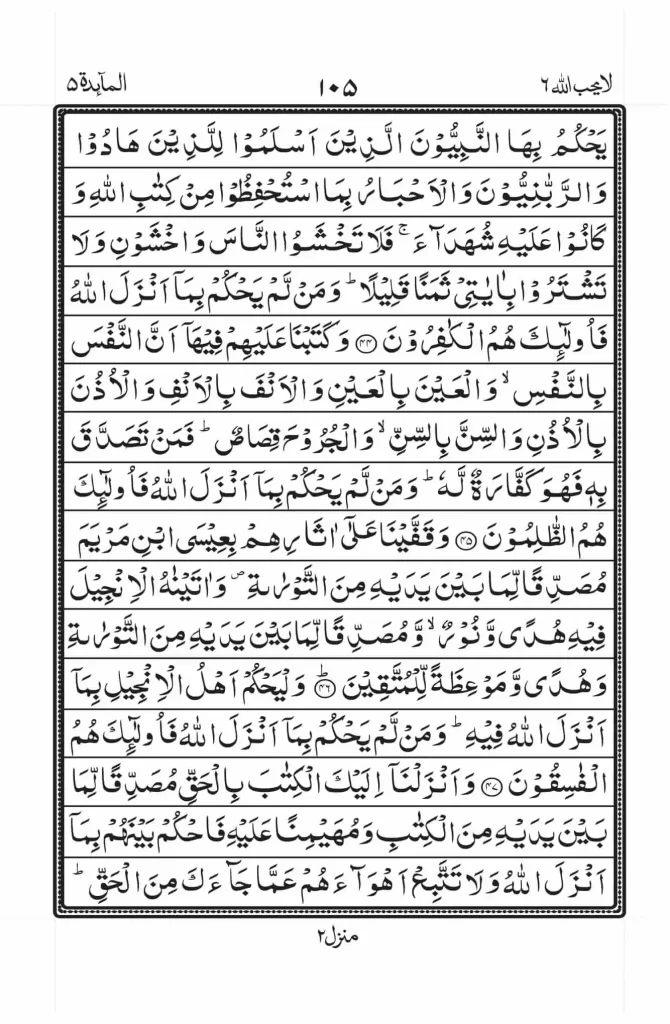 لا يحب الله ٦
١٠٥
المآىٕدة ٥
يَحۡكُمُ بِهَا النَّبِيُّوۡنَ الَّذِيۡنَ اَسۡلَمُوۡا لِلَّذِيۡنَ هَادُوۡا
وَالرَّبّٰنِيُّوۡنَ وَالۡاَحۡبَارُ بِمَا اسۡتُحۡفِظُوۡا مِنۡ كِتٰبِ اللّٰهِ وَ
كَانُوۡا عَلَيۡهِ شُهَدَآءَ ۚ فَلَا تَخۡشَوُا النَّاسَ وَاخۡشَوۡنِ وَلَا
تَشۡتَرُوۡا بِاٰيٰتِىۡ ثَمَنًا قَلِيۡلًا ؕ وَمَنۡ لَّمۡ يَحۡكُمۡ بِمَاۤ اَنۡزَلَ اللّٰهُ
فَاُولٰٓٮِٕكَ هُمُ الۡكٰفِرُوۡنَ ﴿۴۴﴾ وَكَتَبۡنَا عَلَيۡهِمۡ فِيۡهَاۤ اَنَّ النَّفۡسَ
بِالنَّفۡسِ ۙ وَالۡعَيۡنَ بِالۡعَيۡنِ وَالۡاَنۡفَ بِالۡاَنۡفِ وَالۡاُذُنَ
بِالۡاُذُنِ وَالسِّنَّ بِالسِّنِّ ۙ وَالۡجُرُوۡحَ قِصَاصٌ ؕ فَمَنۡ تَصَدَّقَ
بِهٖ فَهُوَ كَفَّارَةٌ لَّهٗ ؕ وَمَنۡ لَّمۡ يَحۡكُمۡ بِمَاۤ اَنۡزَلَ اللّٰهُ فَاُولٰٓٮِٕكَ
هُمُ الظّٰلِمُوۡنَ ﴿۴۵﴾ وَقَفَّيۡنَا عَلٰٓى اٰثَارِهِمۡ بِعِيۡسَى ابۡنِ مَرۡيَمَ
مُصَدِّقًا لِّمَا بَيۡنَ يَدَيۡهِ مِنَ التَّوۡرٰٮةِ ۖ وَاٰتَيۡنٰهُ الۡاِنۡجِيۡلَ
فِيۡهِ هُدًى وَّنُوۡرٌ ۙ وَّمُصَدِّقًا لِّمَا بَيۡنَ يَدَيۡهِ مِنَ التَّوۡرٰٮةِ
وَهُدًى وَّمَوۡعِظَةً لِّلۡمُتَّقِيۡنَ ؕ ﴿۴۶﴾ وَلۡيَحۡكُمۡ اَهۡلُ الۡاِنۡجِيۡلِ بِمَاۤ
اَنۡزَلَ اللّٰهُ فِيۡهِ ؕ وَمَنۡ لَّمۡ يَحۡكُمۡ بِمَاۤ اَنۡزَلَ اللّٰهُ فَاُولٰٓٮِٕكَ هُمُ
الۡفٰسِقُوۡنَ ﴿۴۷﴾ وَاَنۡزَلۡنَاۤ اِلَيۡكَ الۡكِتٰبَ بِالۡحَقِّ مُصَدِّقًا لِّمَا
بَيۡنَ يَدَيۡهِ مِنَ الۡكِتٰبِ وَمُهَيۡمِنًا عَلَيۡهِ فَاحۡكُمۡ بَيۡنَهُمۡ بِمَاۤ
اَنۡزَلَ اللّٰهُ وَلَا تَتَّبِعۡ اَهۡوَآءَهُمۡ عَمَّا جَآءَكَ مِنَ الۡحَقِّ ؕ
منزل ٢